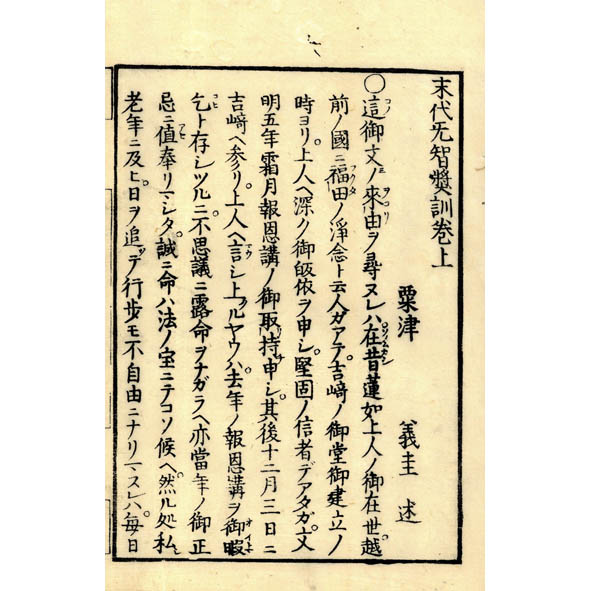 末代无智奬訓卷上
粟津 義圭 述
〇這御文ノ來由ヲ尋ヌレハ在昔蓮如上人ノ御在世越
前ノ國ニ福田ノ淨念ト云人ガアテ吉﨑ノ御堂御建立ノ
時ヨリ。上人ヘ深ク御皈依ヲ申シ。堅固ノ信者デアタガ。文
明五年霜月報恩講ノ御取持申シ。其後十二月三日ニ
吉﨑ヘ參リ。上人ヘ言シ上ルヤウハ。去年ノ報恩講ヲ御暇
乞ト存シツルニ。不思議ニ露命ヲナガラヘ。亦當年ノ御正
忌ニ値奉リマシタ。誠ニ命ハ法ノ宝ニテコソ候ヘ。然ル処私
老年ニ及ヒ。日ヲ追ッデ行歩モ不自由ニナリマスレハ。每日